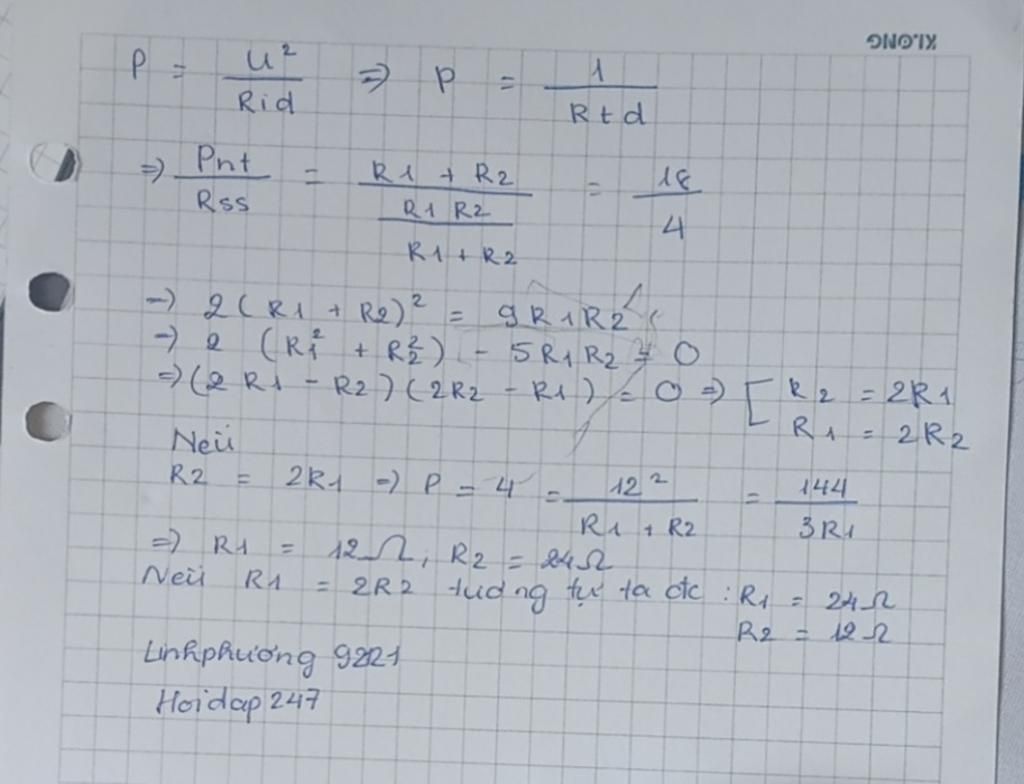 KLONG
P = U² / Rid => P = 1 / Rtd
=> Pnt / Rss = (R1 + R2) / (R1 R2 / (R1 + R2)) = 18 / 4
-) 2(R1 + R2)² = 9R1R2
-) 2 (R1² + R2²) - 5R1R2 = 0
=> (2R1 - R2)(2R2 - R1) = 0 => [ R2 = 2R1
R1 = 2R2
Nếu
R2 = 2R1 => P = 4 = 12² / (R1 + R2) = 144 / 3R1
=> R1 = 12Ω; R2 = 24Ω
Nếu R1 = 2R2 tương tự ta đc : R1 = 24Ω
R2 = 12Ω
Linhphương 9221
Hoidap247